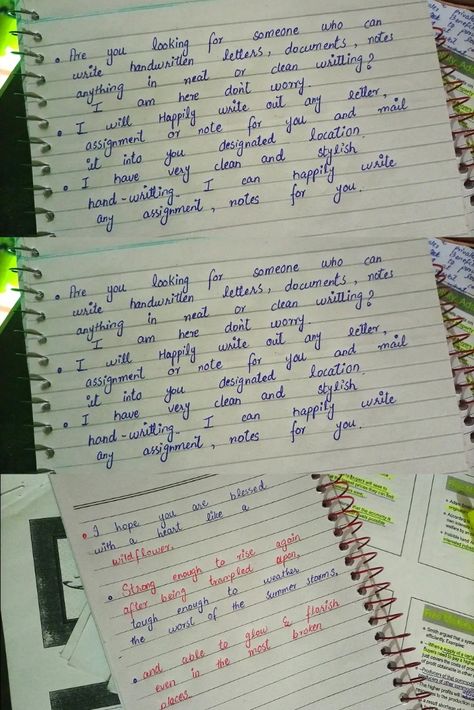 • Are you looking for someone who can
write handwritten letters, documents, notes
anything in neat or clean writting?
I am here don't worry
• I will Happily write out any letter,
assignment or note for you and mail
it into you designated location.
• I have very clean and stylish
hand-writting. I can happily write
any assignment, notes for you.
• Are you looking for someone who can
write handwritten letters, documents, notes
anything in neat or clean writting?
I am here don't worry
• I will Happily write out any letter,
assignment or note for you and mail
it into you designated location.
• I have very clean and stylish
hand-writting. I can happily write
any assignment, notes for you.
• I hope you are blessed
with a heart like a
wildflower.
• Strong enough to rise again
after being trampled upon,
tough enough to weather
the worst of the summer storms,
• and able to glow & florish
even in the most broken
places.